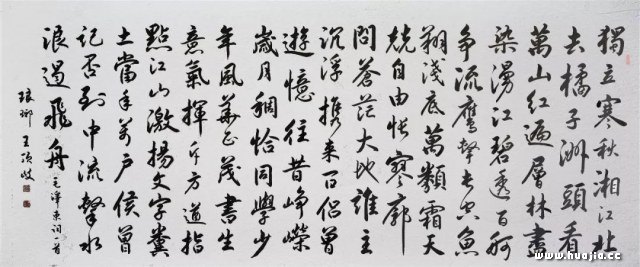 獨立寒秋湘江北
去橘子洲頭看
萬山紅遍層林盡
染漫江碧透百舸
争流鷹擊長空魚
翔淺底萬類霜天
競自由悵寥廓
問蒼茫大地誰主
沉浮携来百侣曾
遊憶往昔崢嶸
歲月稠恰同學少
年風華正茂書生
意氣揮斥方遒指
點江山激揚文字糞
土當年萬户侯曾
記否到中流擊水
浪遏飛舟 毛澤東詞一首
琅琊王
www.huajia.cc